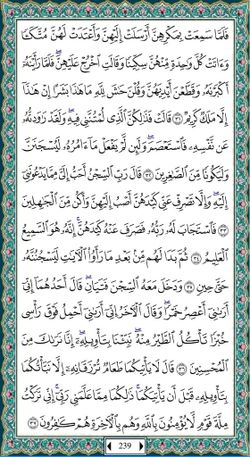 فَلَمَّا سَمِعَتْ بِمَكْرِهِنَّ أَرْسَلَتْ إِلَيْهِنَّ وَأَعْتَدَتْ لَهُنَّ مُتَّكَـًٔا
وَءَاتَتْ كُلَّ وَٰحِدَةٍ مِّنْهُنَّ سِكِّينًا وَقَالَتِ ٱخْرُجْ عَلَيْهِنَّ ۖ فَلَمَّا رَأَيْنَهُۥٓ
أَكْبَرْنَهُۥ وَقَطَّعْنَ أَيْدِيَهُنَّ وَقُلْنَ حَـٰشَ لِلَّهِ مَا هَـٰذَا بَشَرًا إِنْ هَـٰذَآ
إِلَّا مَلَكٌ كَرِيمٌ ٣١ قَالَتْ فَذَٰلِكُنَّ ٱلَّذِى لُمْتُنَّنِى فِيهِ ۖ وَلَقَدْ رَٰوَدتُّهُۥ
عَن نَّفْسِهِۦ فَٱسْتَعْصَمَ ۖ وَلَئِن لَّمْ يَفْعَلْ مَآ ءَامُرُهُۥ لَيُسْجَنَنَّ
وَلَيَكُونًا مِّنَ ٱلصَّـٰغِرِينَ ٣٢ قَالَ رَبِّ ٱلسِّجْنُ أَحَبُّ إِلَىَّ مِمَّا يَدْعُونَنِىٓ
إِلَيْهِ ۖ وَإِلَّا تَصْرِفْ عَنِّى كَيْدَهُنَّ أَصْبُ إِلَيْهِنَّ وَأَكُن مِّنَ ٱلْجَـٰهِلِينَ
٣٣ فَٱسْتَجَابَ لَهُۥ رَبُّهُۥ فَصَرَفَ عَنْهُ كَيْدَهُنَّ ۚ إِنَّهُۥ هُوَ ٱلسَّمِيعُ
ٱلْعَلِيمُ ٣٤ ثُمَّ بَدَا لَهُم مِّنۢ بَعْدِ مَا رَأَوُا۟ ٱلْـَٔايَـٰتِ لَيَسْجُنُنَّهُۥ
حَتَّىٰ حِينٍ ٣٥ وَدَخَلَ مَعَهُ ٱلسِّجْنَ فَتَيَانِ ۖ قَالَ أَحَدُهُمَآ إِنِّىٓ
أَرَىٰنِىٓ أَعْصِرُ خَمْرًا ۖ وَقَالَ ٱلْـَٔاخَرُ إِنِّىٓ أَرَىٰنِىٓ أَحْمِلُ فَوْقَ رَأْسِى
خُبْزًا تَأْكُلُ ٱلطَّيْرُ مِنْهُ ۖ نَبِّئْنَا بِتَأْوِيلِهِۦٓ ۖ إِنَّا نَرَىٰكَ مِنَ
ٱلْمُحْسِنِينَ ٣٦ قَالَ لَا يَأْتِيكُمَا طَعَامٌ تُرْزَقَانِهِۦٓ إِلَّا نَبَّأْتُكُمَا
بِتَأْوِيلِهِۦ قَبْلَ أَن يَأْتِيَكُمَا ۚ ذَٰلِكُمَا مِمَّا عَلَّمَنِى رَبِّىٓ ۚ إِنِّى تَرَكْتُ
مِلَّةَ قَوْمٍ لَّا يُؤْمِنُونَ بِٱللَّهِ وَهُم بِٱلْـَٔاخِرَةِ هُمْ كَـٰفِرُونَ ٣٧
239